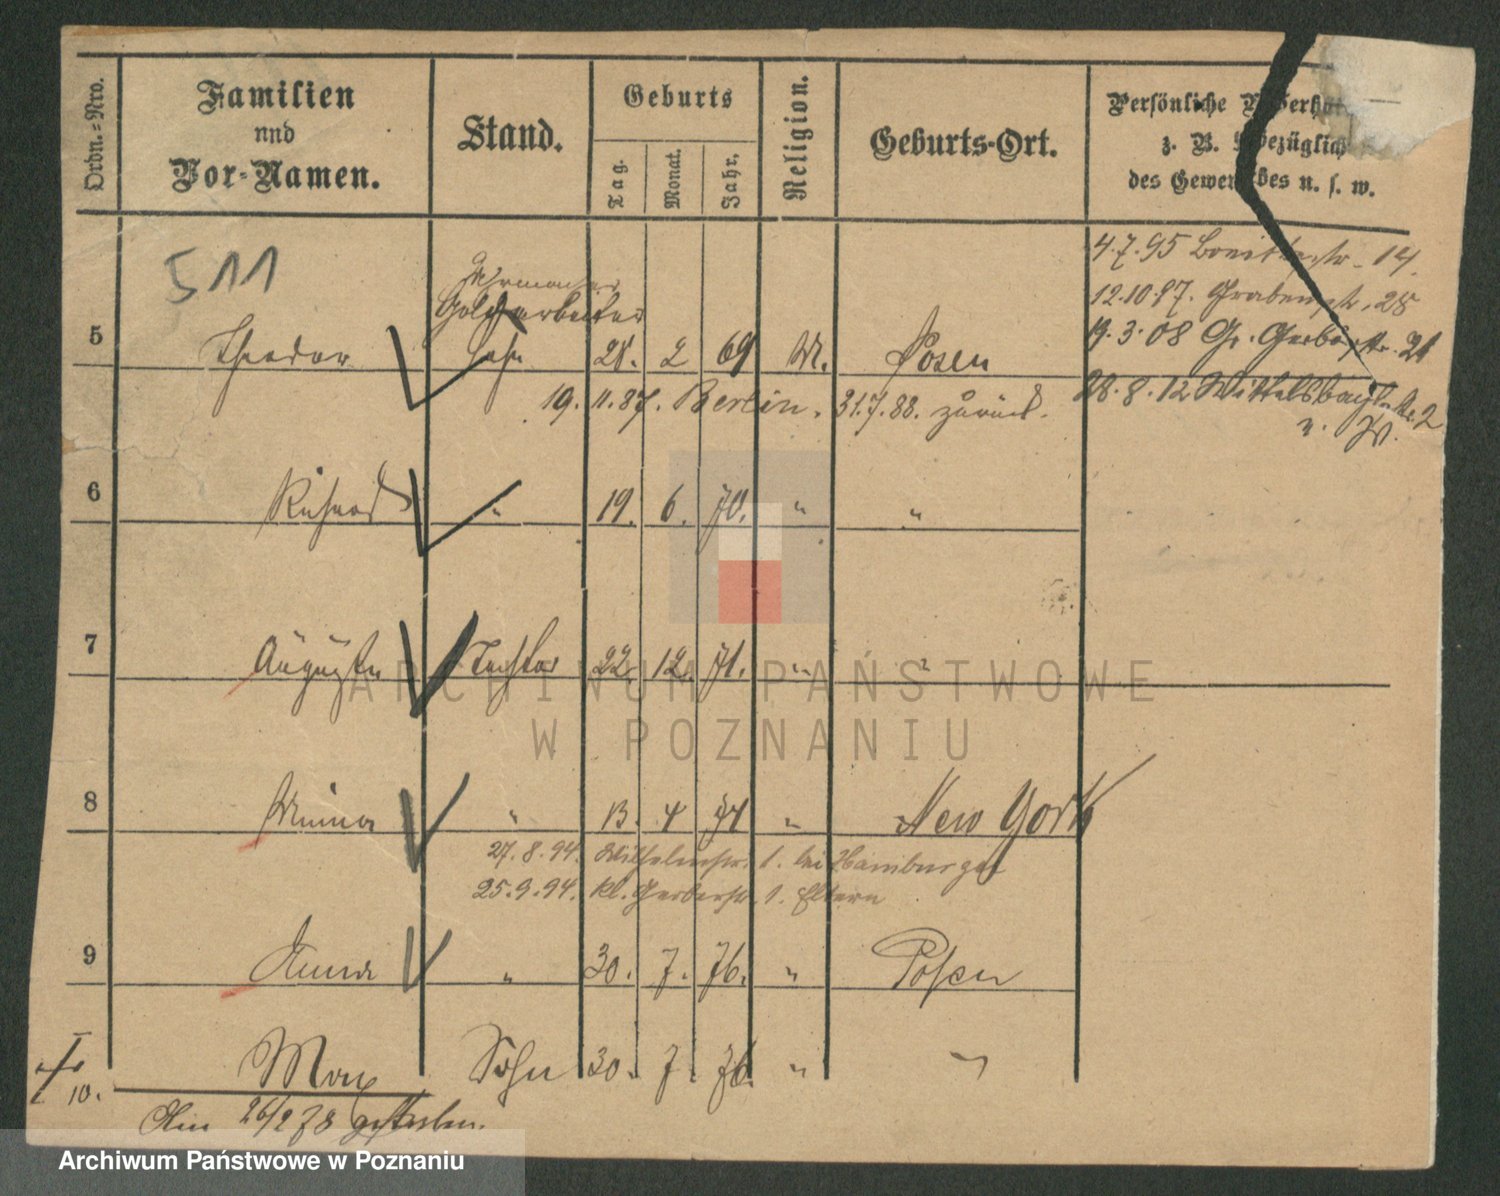 Ordn.=Nro.
Familien
und
Vor=Namen.
Stand.
Geburts
Tag.
Monat.
Jahr.
Religion.
Geburts-Ort.
Persönliche
z. B. bezüglich
des Gewerbes u. s. w.
511
4.7.95 Breitestr. 14.
12.10.97. Grabenstr. 28
19.3.08 Gr. Gerberstr. 21
28.8.12 Wittelsbach str. 2
Uhrmacher
Goldarbeiter
5 Theodor Sohn 28. 2 69 M. Posen
19. 11. 87. Berlin. 31.7.88. zurück.
6 Richard " 19. 6. 70. " "
7 Auguste Tochter 22. 12. 71. " "
8 Minna " 13. 4 74 " New York
27.8.94. Wilhelmstr. 1. bei Hamburger
25.9.94. kl. Gerberstr. 1. Eltern
9 Anna " 30. 7. 76. " Posen
10. Max Sohn 30. 7. 76. " "
Am 26/2 78 gestorben.
ARCHIWUM PAŃSTWOWE
W POZNANIU
Archiwum Państwowe w Poznaniu